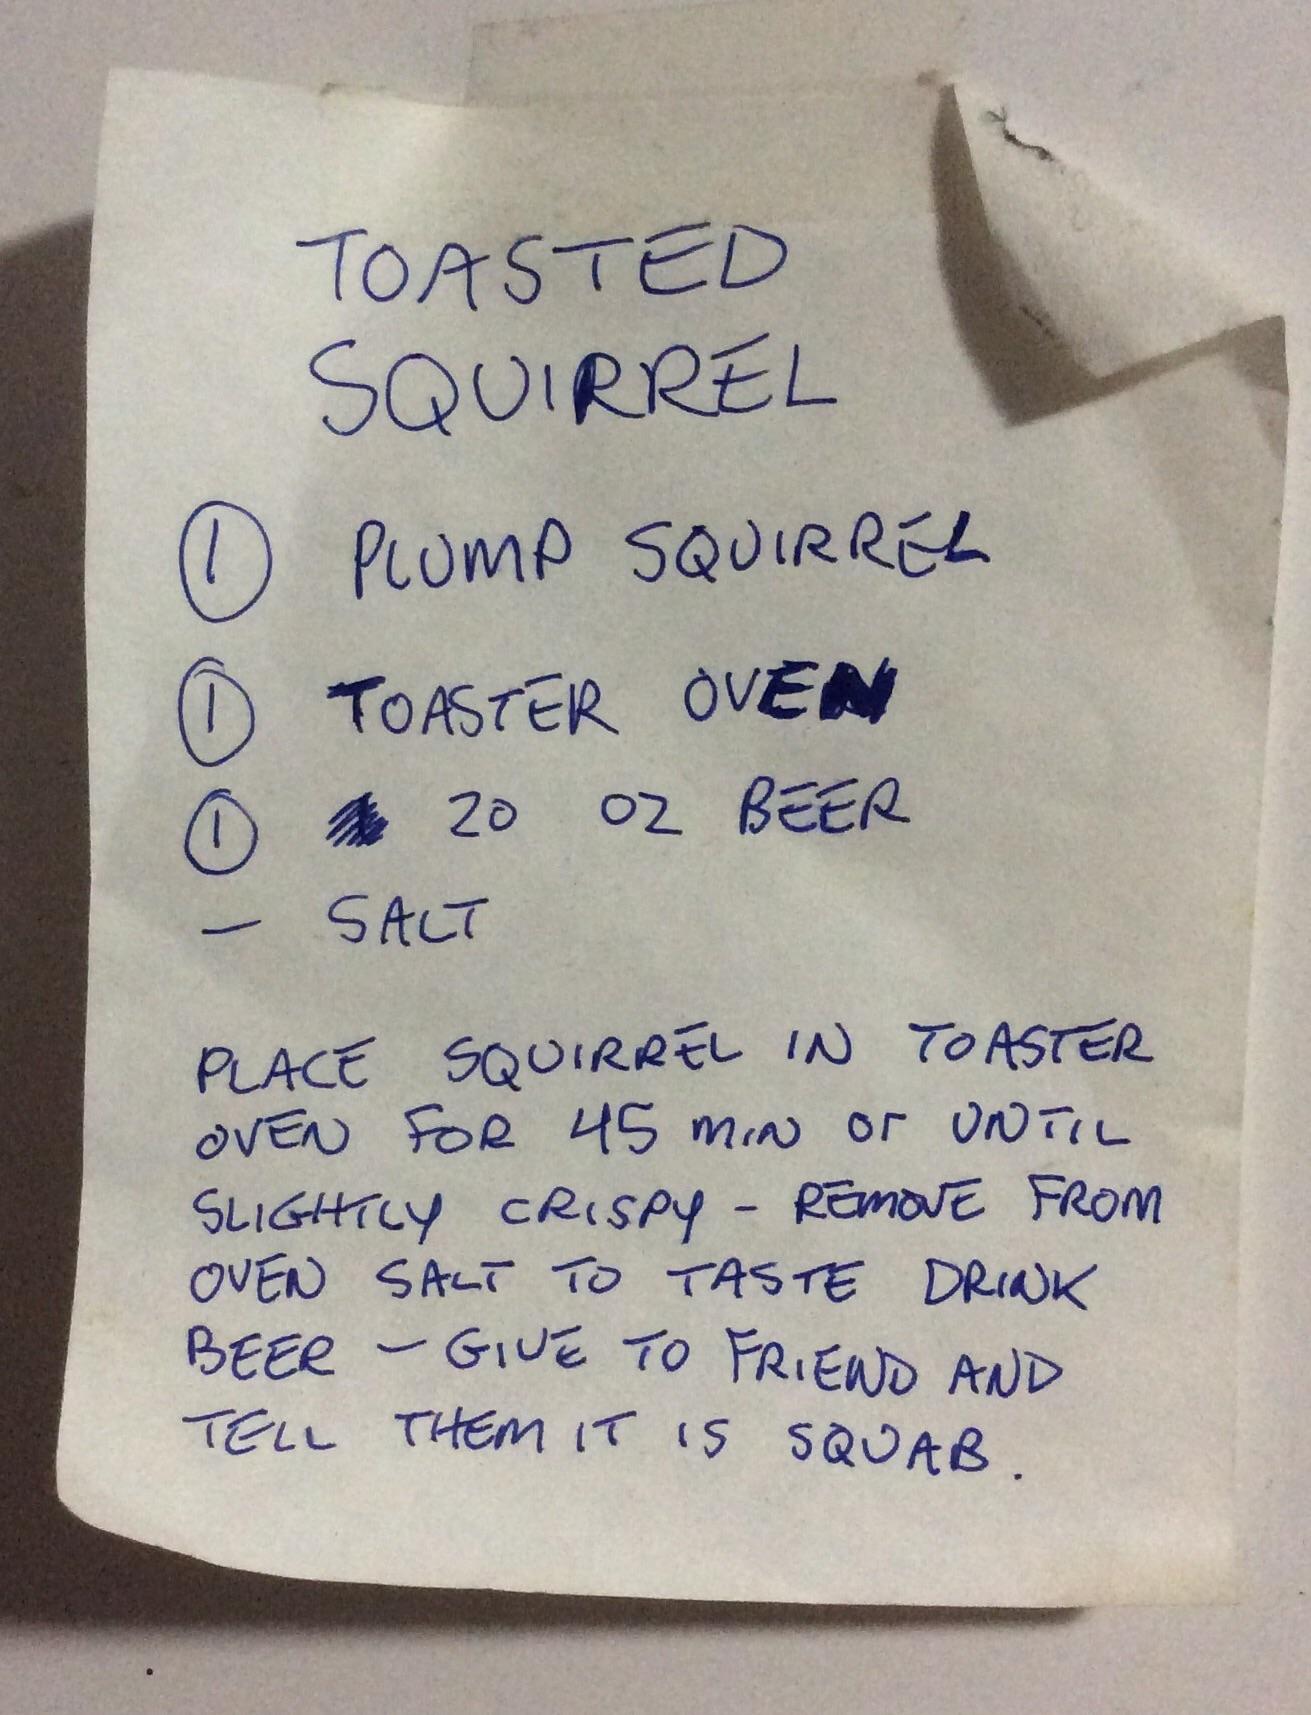 TOASTED
SQUIRREL
1 PLUMP SQUIRREL
1 TOASTER OVEN
1 20 OZ BEER
— SALT
PLACE SQUIRREL IN TOASTER
OVEN FOR 45 MIN or UNTIL
SLIGHTLY CRISPY - REMOVE FROM
OVEN SALT TO TASTE DRINK
BEER - GIVE TO FRIEND AND
TELL THEM IT IS SQUAB.